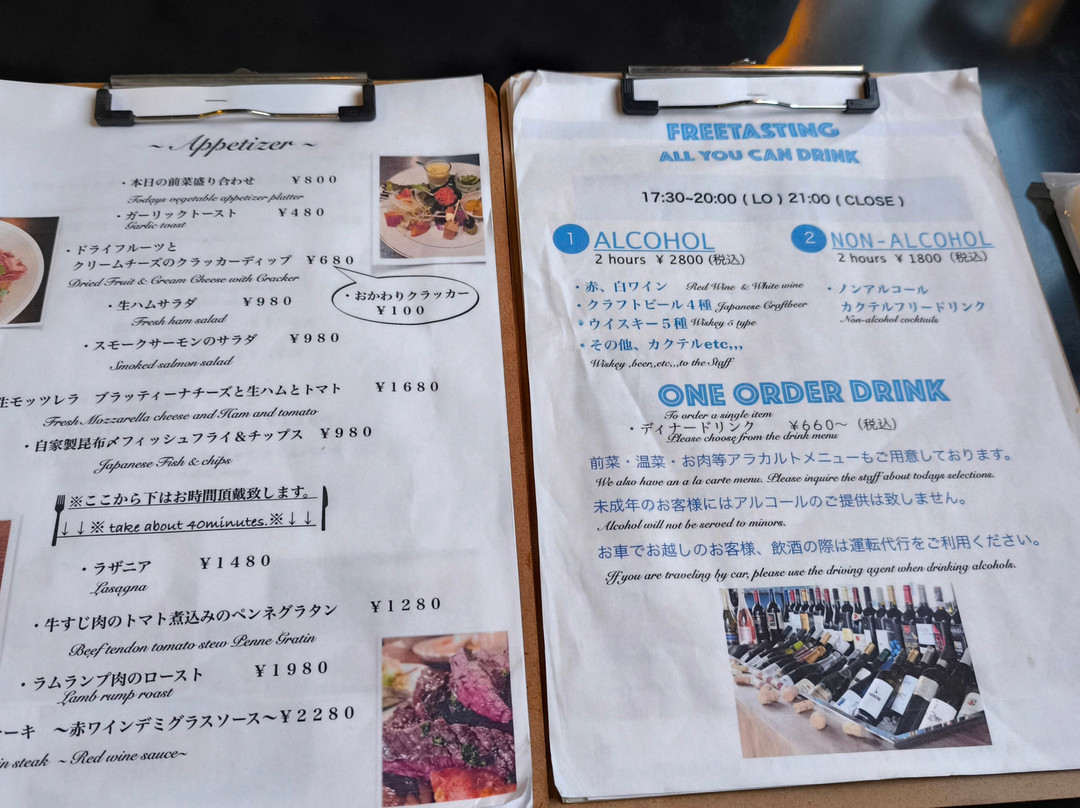 ~ Appetizer ~
・本日の前菜盛り合わせ ¥800
Todays vegetable appetizer platter
・ガーリックトースト ¥480
Garlic toast
・ドライフルーツと
クリームチーズのクラッカーディップ ¥680
Dried Fruit & Cream Cheese with Cracker
・おかわりクラッカー
¥100
・生ハムサラダ ¥980
Fresh ham salad
・スモークサーモンのサラダ ¥980
Smoked salmon salad
生モッツレラ ブラッティーナチーズと生ハムとトマト ¥1680
Fresh Mozzarella cheese and Ham and tomato
・自家製昆布〆フィッシュフライ&チップス ¥980
Japanese Fish & chips
※ここから下はお時間頂戴致します。
↓↓※ take about 40minutes.※↓↓
・ラザニア ¥1480
Lasagna
・牛すじ肉のトマト煮込みのペンネグラタン ¥1280
Beef tendon tomato stew Penne Gratin
・ラムランプ肉のロースト ¥1980
Lamb rump roast
ーキ 〜赤ワインデミグラスソース〜¥2280
steak ~Red wine sauce~
FREETASTING
ALL YOU CAN DRINK
17:30~20:00 ( LO ) 21:00 ( CLOSE )
1 ALCOHOL
2 hours ¥2800 (税込)
・赤、白ワイン Red Wine & White wine
・クラフトビール4種 Japanese Craftbeer
・ウイスキー5種 Wiskey 5 type
・その他、カクテルetc,,,
Wiskey ,beer,,etc,,,to the Staff
2 NON-ALCOHOL
2 hours ¥1800 (税込)
・ノンアルコール
カクテルフリードリンク
Non-alcohol cocktails
ONE ORDER DRINK
To order a single item
・ディナードリンク ¥660〜 (税込)
Please choose from the drink menu
前菜・温菜・お肉等アラカルトメニューもご用意しております。
We also have an a la carte menu. Please inquire the staff about todays selections.
未成年のお客様にはアルコールのご提供は致しません。
Alcohol will not be served to minors.
お車でお越しのお客様、飲酒の際は運転代行をご利用ください。
If you are traveling by car, please use the driving agent when drinking alcohols.